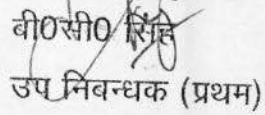 बी0सी0 सिंह
उप निबन्धक (प्रथम)